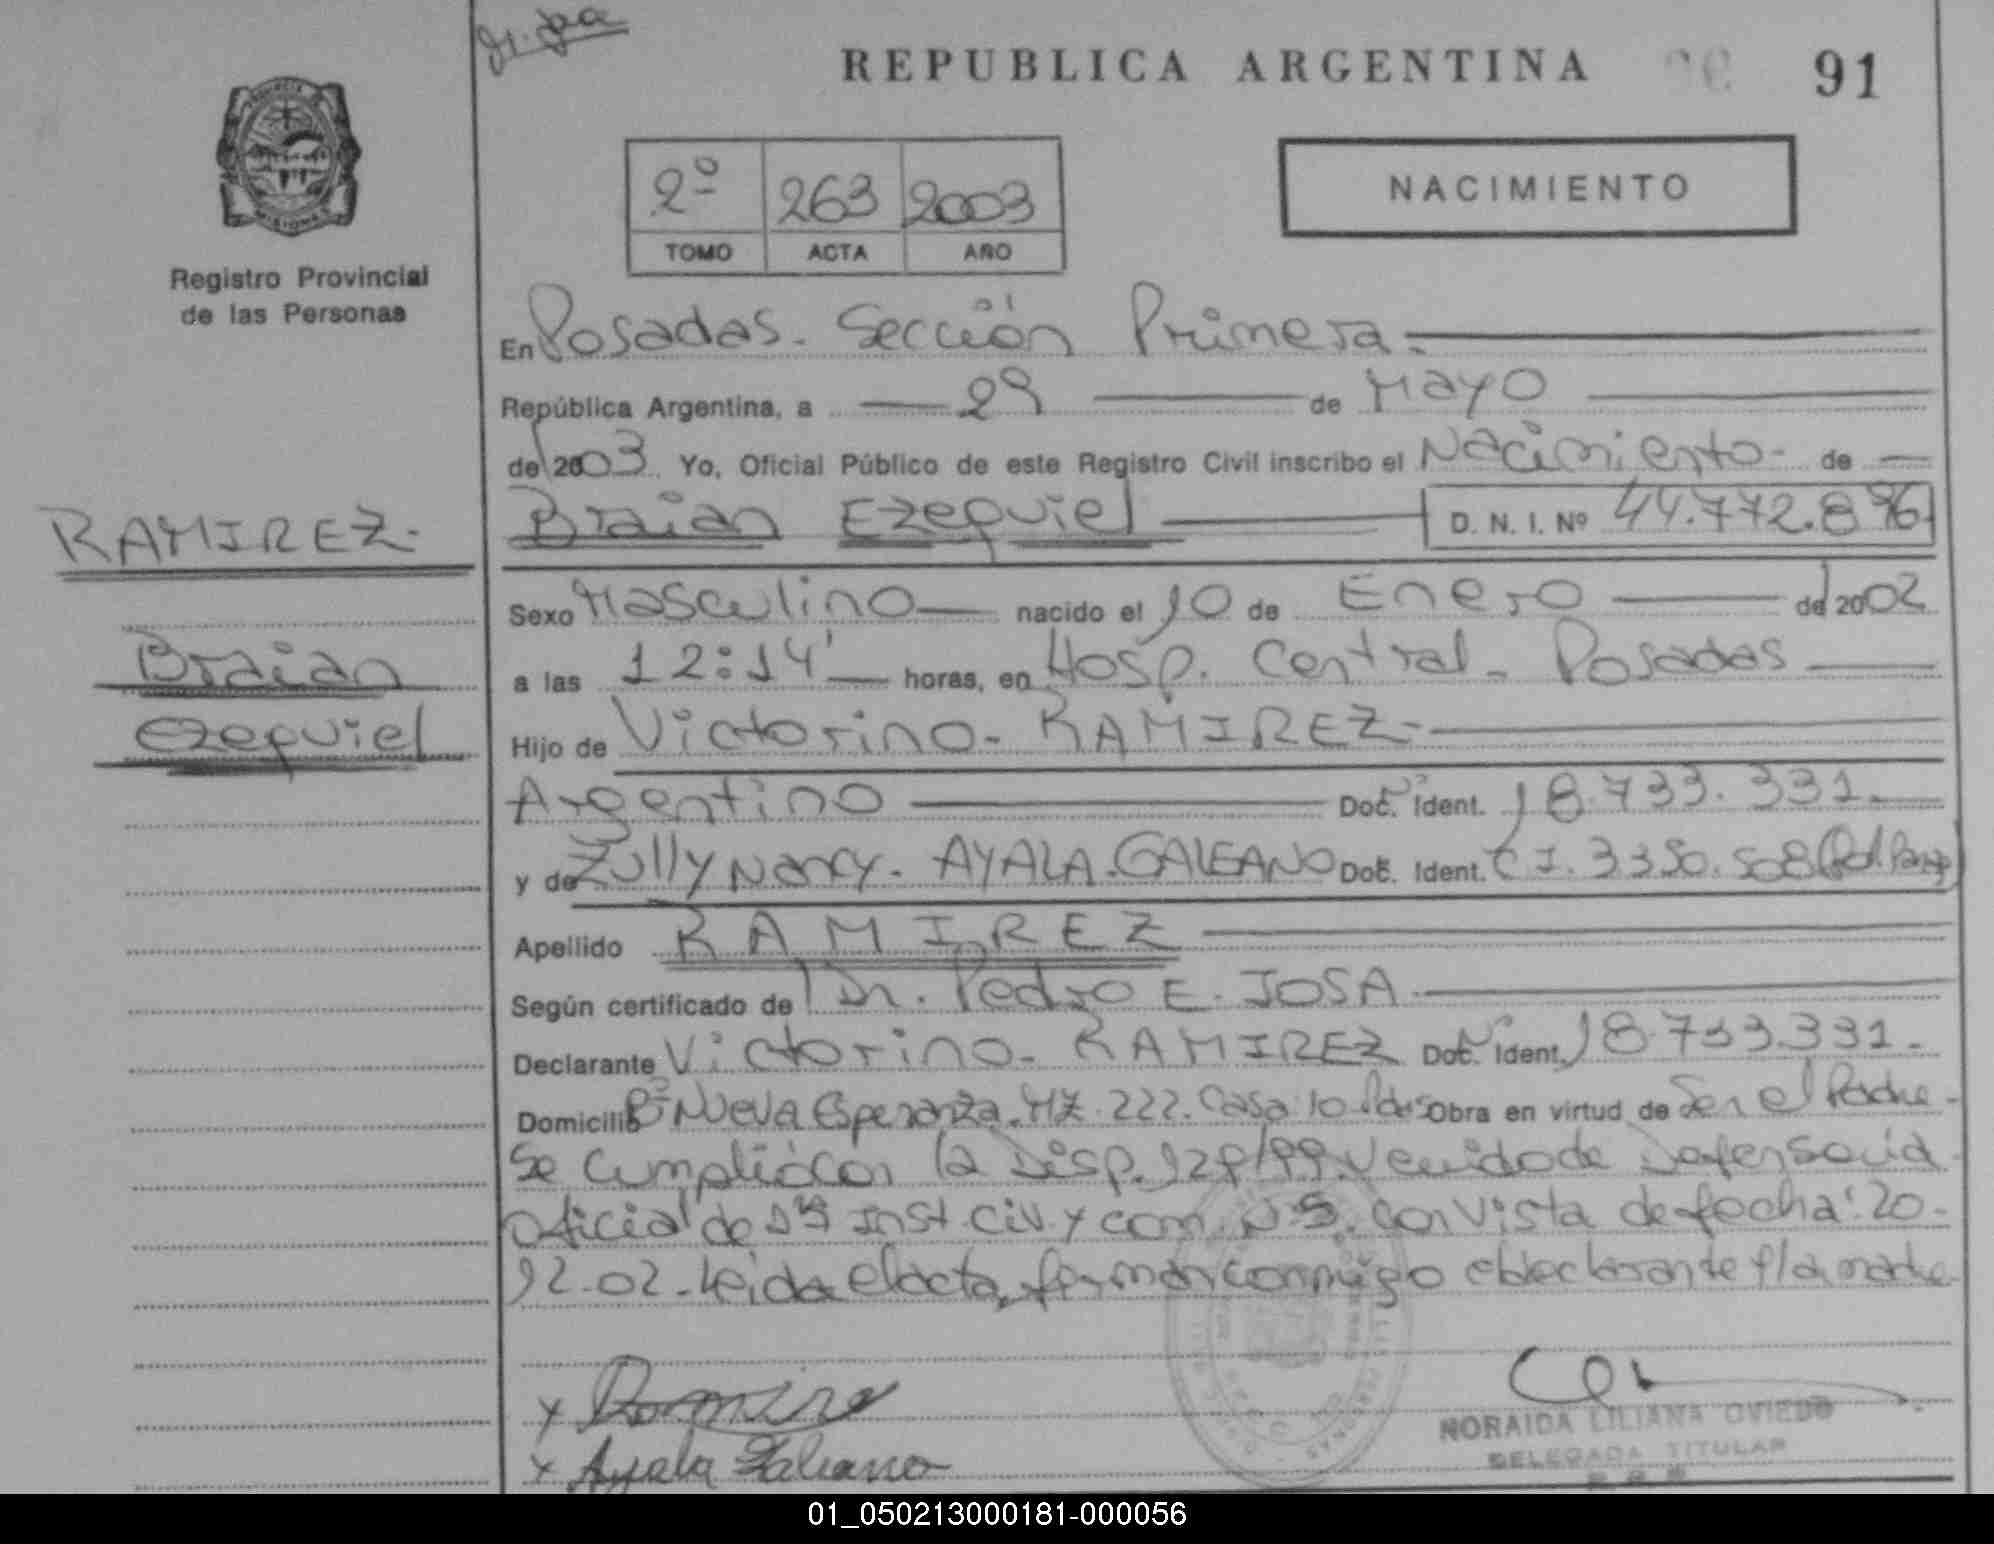 REPUBLICA ARGENTINA 91
2º 263 2003
TOMO ACTA AÑO
NACIMIENTO
Registro Provincial
de las Personas
En Posadas. Sección Primera.
República Argentina, a 29 de Mayo
de 2003 Yo, Oficial Público de este Registro Civil inscribo el Nacimiento de
Braian Ezequiel D. N. I. Nº 44.772.896
RAMIREZ
Braian
Ezequiel
Sexo Masculino nacido el 10 de Enero de 2002
a las 12:14' horas, en Hosp. Central - Posadas
Hijo de Victorino - RAMIREZ -
Argentino Doc. Ident. 18.733.331.
y de Zully Nancy. AYALA. GALEANO Doc. Ident. C I. 3350.508
Apellido RAMIREZ
Según certificado de Dr. Pedro E. JOSA
Declarante Victorino - RAMIREZ Doc. Ident. 18.733.331.
Domicilio Bº Nueva Esperanza. MZ. 222. Casa 10 Obra en virtud de Ser el Padre -
Se cumplió con la Disp. 129/99. Venido de Defensoria
Oficial de 1ª Inst. Civ. y com. N. 5. con vista de fecha: 20 -
12 - 02 - Leida el acta, firman conmigo el declarante y la madre
x Ramirez
x Ayala Galeano
NORAIDA LILIANA OVIEDO
DELEGADA TITULAR
01_050213000181-000056